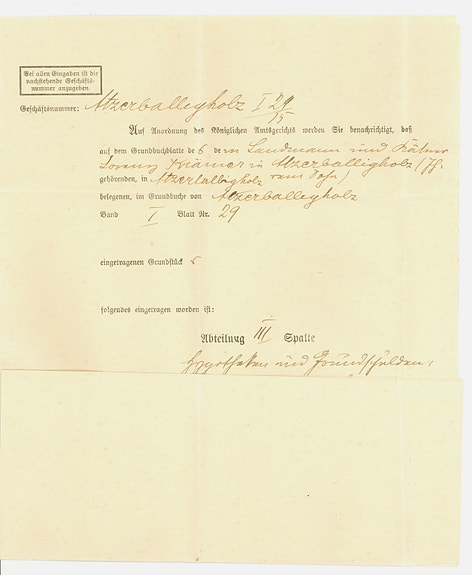 Bei allen Eingaben ist die
nachstehende Geschäfts-
nummer anzugeben.
Geschäftsnummer: Atzerballegholz I 29
/15
Auf Anordnung des Königlichen Amtsgerichts werden Sie benachrichtigt, daß
auf dem Grundbuchblatte des dem Landmann und Kätner
Lorenz Krämer in Atzerballigholz
gehörenden, in Atzerballigholz
belegenen, im Grundbuche von Atzerballegholz
Band I Blatt Nr. 29
eingetragenen Grundstücks
folgendes eingetragen worden ist:
Abteilung III Spalte
Hypotheken und Grundschulden,